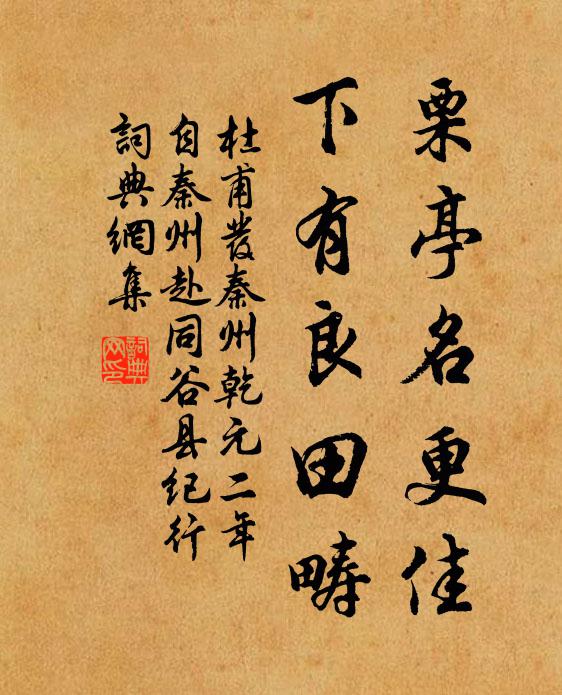 栗亭名更佳
下有良田疇
杜甫發秦州乾元二年
自秦州赴同谷县纪行
詞典網集
詞典网印